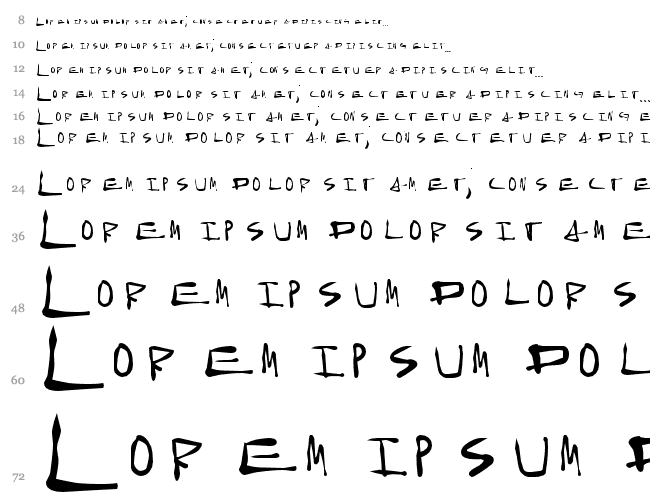 8 LOREM IPSUM DOLOR SIT AMET; CONSECTETUER ADIPISCING ELIT...
10 LOREM IPSUM DOLOR SIT AMET; CONSECTETUER ADIPISCING ELIT...
12 LOREM IPSUM DOLOR SIT AMET; CONSECTETUER ADIPISCING ELIT...
14 LOREM IPSUM DOLOR SIT AMET; CONSECTETUER ADIPISCING ELIT...
16 LOREM IPSUM DOLOR SIT AMET; CONSECTETUER ADIPISCING E
18 LOREM IPSUM DOLOR SIT AMET; CONSECTETUER ADIPI
24 LOREM IPSUM DOLOR SIT AMET; CONSECTE
36 LOREM IPSUM DOLOR SIT AME
48 LOREM IPSUM DOLOR S
60 LOREM IPSUM DOL
72 LOREM IPSUM D